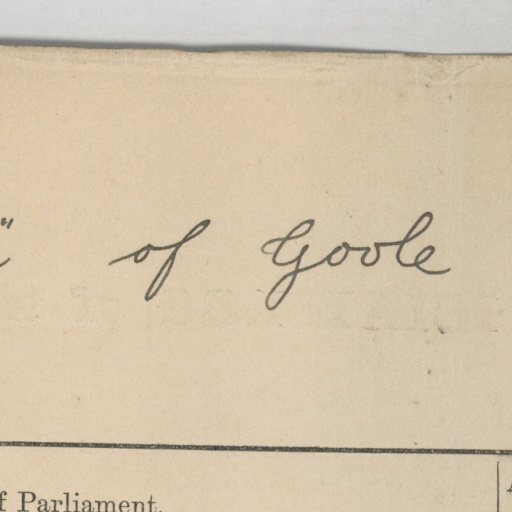 " of Goole
f Parliament.